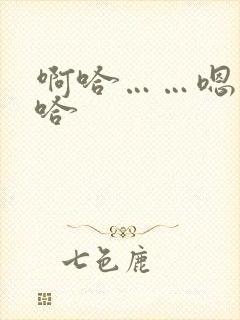 啊哈……嗯
哈
七色鹿